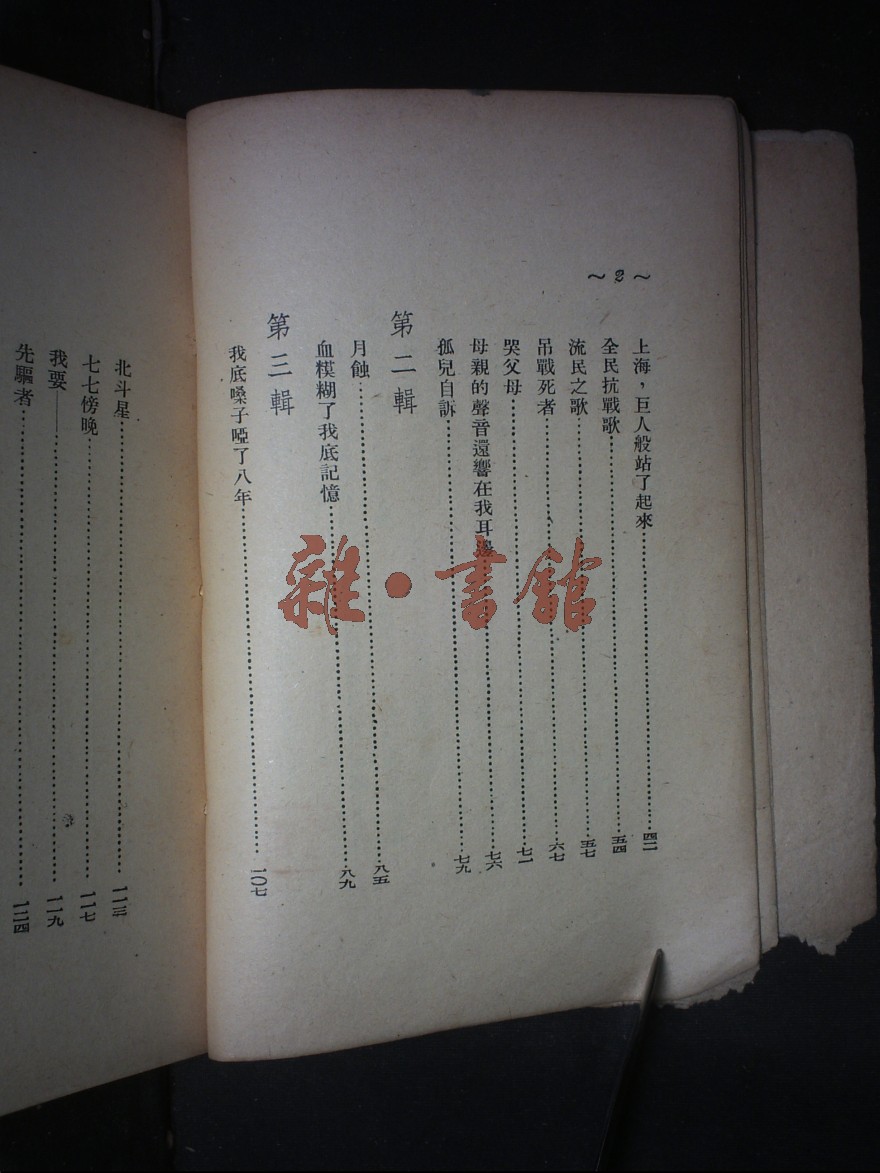 ～2～
上海，巨人般站了起來……四二
全民抗戰歌……五四
流民之歌……五七
吊戰死者……六七
哭父母……七一
母親的聲音還響在我耳邊……七六
孤兒自訴……七九
第二輯
月蝕……八五
血糢糊了我底記憶……八九
第三輯
我底嗓子啞了八年……一〇七
北斗星……一一三
七七傍晚……一一七
我要——……一一九
先驅者……一二四
雜·書館